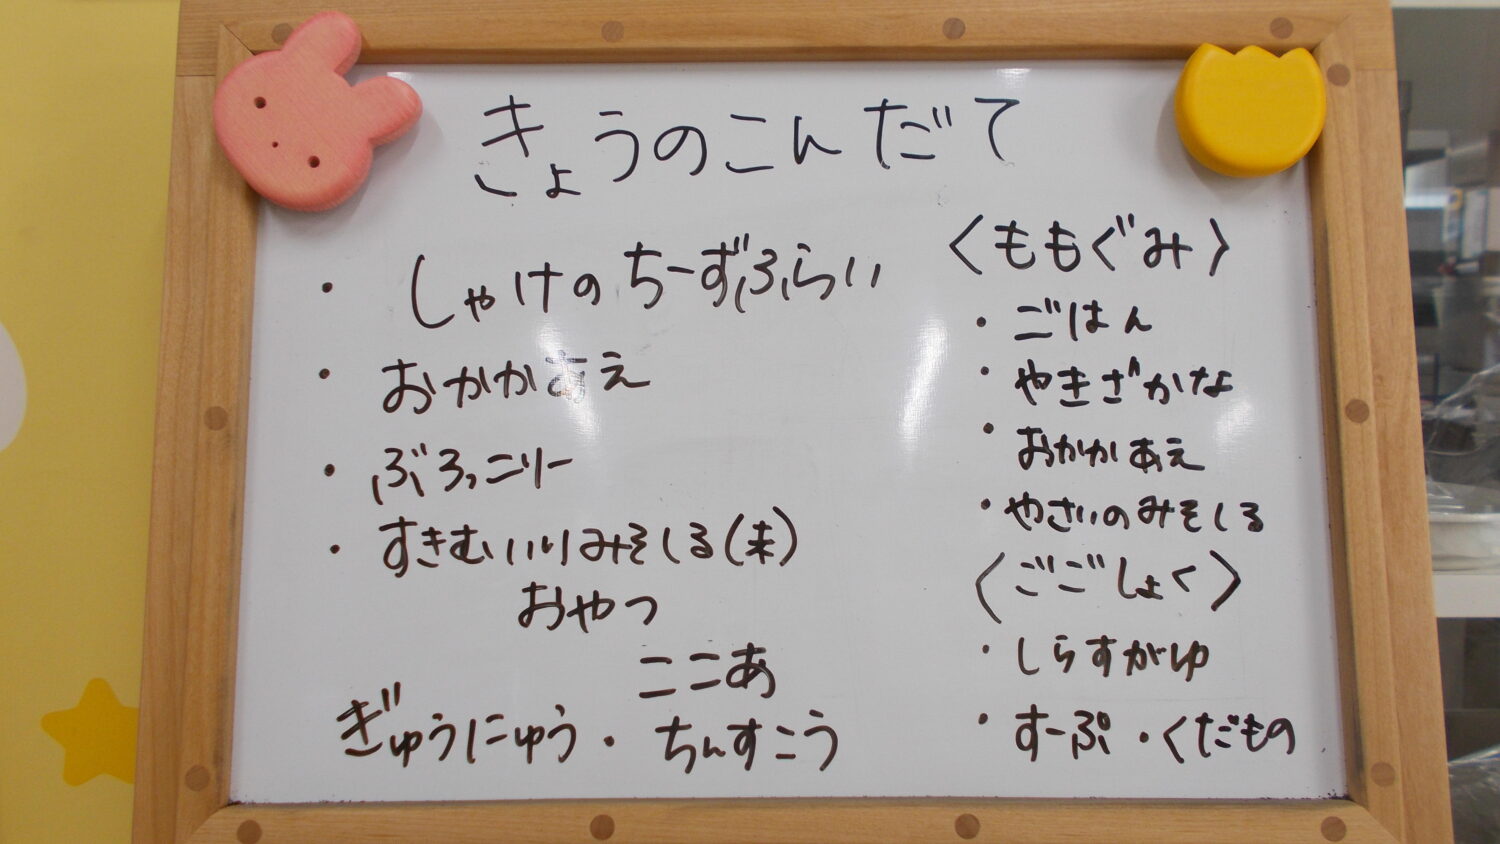 きょうのこんだて
・しゃけのちーずふらい
・おかかあえ
・ぶろっこりー
・すきむいりみそしる(未)
おやつ
ここあ
ぎゅうにゅう・ちんすこう
〈ももぐみ〉
・ごはん
・やきざかな
・おかかあえ
・やさいのみそしる
〈ごごしょく〉
・しらすがゆ
・すーぷ・くだもの